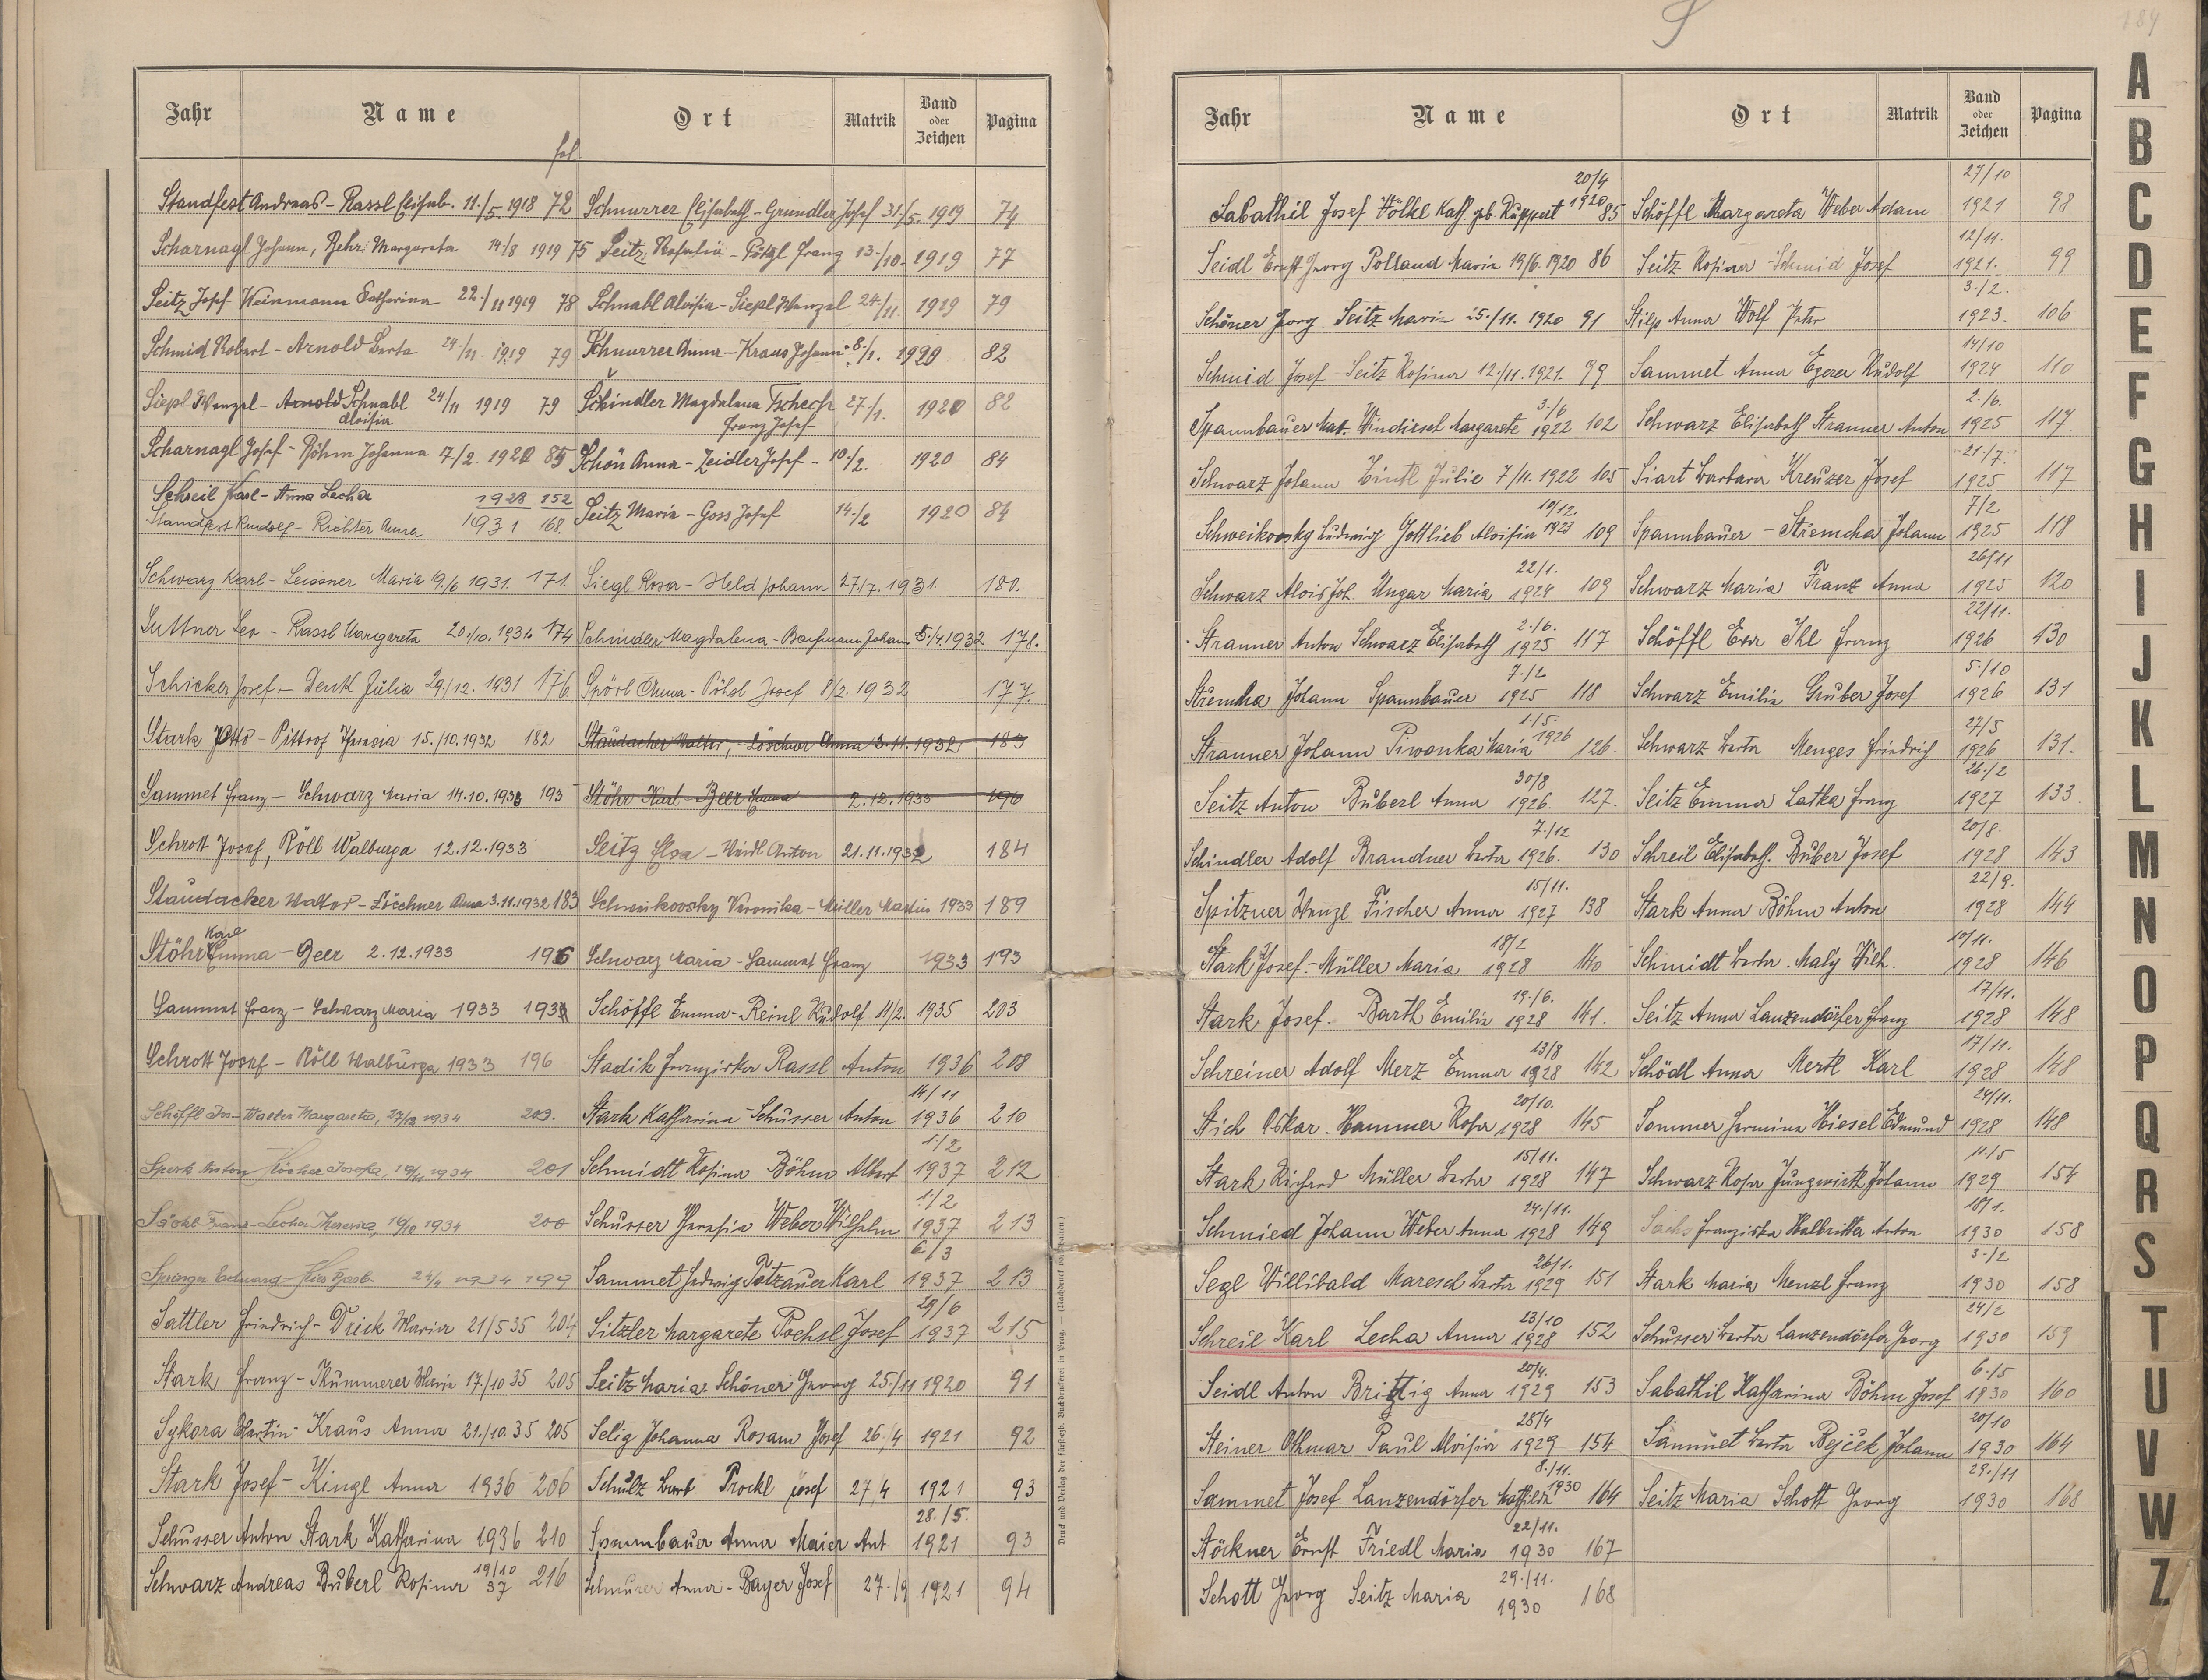 Jahr Name Ort Matrik Band oder Zeichen Pagina
fol
Standfest Andreas - Rassl Elisab. 11./5. 1918 72 Schnurrer Elisabeth - Grundler Josef 31./5. 1919 74
Scharnagl Johann, Behr Margareta 14/8 1919 75 Seitz Rosalia - Pötzl Franz 13./10. 1919 77
Seitz Josef Weinmann Katharina 22./11 1919 78 Schnabl Aloisia - Siepl Wenzel 24./11. 1919 79
Schmid Robert - Arnold Berta 24./11. 1919 79 Schnurrer Anna - Kraus Johann 8./1. 1920 82
Siepl Wenzel - Arnold Schnabl 24/11 1919 79 Schindler Magdalena Tschech 27./1. 1920 82
Aloisia Franz Josef
Scharnagl Josef - Böhm Johanna 7/2. 1920 85 Schön Anna - Zeidler Josef - 10./2. 1920 84
Schreil Karl - Anna Lecha 1928 152
Seitz Maria - Goss Josef 14./2 1920 84
Standfest Rudolf - Richter Anna 1931 168.
Schwarz Karl - Leissner Maria 19./6 1931. 171. Siegl Rosa - Held Johann 27./7. 1931. 180.
Suttner Leo - Rassl Margareta 20./10. 1931 174 Schindler Magdalena - Baufmann Johann 5./4. 1932 178.
Schicker Josef - Denk Julia 29./12. 1931 176 Spörl Anna - Pöhsl Josef 8/2. 1932 177.
Stark Otto - Pittrof Theresia 15./10. 1932 182 Staudacher Walter, - Löschner Anna 3.11.1932 183
Sammet Franz - Schwarz Maria 14.10.1933 193 Stöhr Karl - Beer Emma 2.12.1933 196
Schrott Josef, Röll Walburga 12.12.1933 Seitz Elsa - Weidl Anton 21.11.1932 184
Staudacker Walter - Löschner Anna 3.11.1932 183 Schweikovsky Veronika - Müller Martin 1933 189
Karl
Stöhr Emma - Beer 2.12.1933 196 Schwarz Maria - Sammet Franz 1933 193
Sammet Franz - Schwarz Maria 1933 193 Schöffl Emma - Reinl Rudolf 11/2. 1935 203
Schrott Josef - Röll Walburga 1933 196 Stadik Franziska Rassl Anton 1936 208
14/11
Schöffl Jos - Walter Margareta, 27/12 1934 203. Stark Katharina - Schusser Anton 1936 210
1./2
Sperk Anton Josefa, 19/11 1934 201 Schmidt Rosina Böhm Albert 1937 212
1./2
Franz - Lecha Theresia, 16/10 1934 200 Schusser Theresia Weber Wilhelm 1937 213
6./3
Springer Eduard - 24/4 1934 199 Sammet Hedwig Totzauer Karl 1937 213
29/6
Sattler Friedrich - Drick Maria 21/5 35 204 Sitzler Margarete Pochsl Josef 1937 215
Stark Franz - Kummerer Maria 17./10 35 205 Seitz Maria - Schöner Georg 25/11 1920 91
Sykora Martin - Kraus Anna 21./10. 35 205 Selig Johanna Rosam Josef 26./4 1921 92
Stark Josef - Kingl Anna 1936 206 Schulz Barb Prockl Josef 27/4 1921 93
28./5.
Schusser Anton Stark Katharina 1936 210 Spannbauer Anna Maier Ant 1921 93
Schwarz Andreas Buberl Rosina 19/10 37 216 Schnurer Anna - Bayer Josef 27./9 1921 94
Druck und Verlag der fürsterzb. Buchdruckerei in Prag. — (Nachdruck vorbehalten.)
S
184
Jahr Name Ort Matrik Band oder Zeichen Pagina
20/4 27/10
Sabathil Josef Völkl Kath. geb. Ruppert 1920 85 Schöffl Margareta Weber Adam 1921 98
12/11.
Seidl Ernst Georg Polland Maria 19/6. 1920 86 Seitz Rosina - Schmid Josef 1921. 99
3./2.
Schöner Georg. Seitz Maria 25./11. 1920 91 Stilp Anna Wolf Peter 1923. 106
14/10
Schmid Josef Seitz Rosina 12./11. 1921. 99 Sammet Anna Egerer Rudolf 1924 110
3./6 2./6.
Spannbauer Mat. Windirsch Margarete 1922 102 Schwarz Elisabeth Stranner Anton 1925 117
21./7.
Schwarz Johann Zintl Julie 7/11. 1922 105 Siart Barbara Kreuzer Josef 1925 117
19/12. 7/2
Schweikovsky Ludwig Gottlieb Aloisia 1923 109 Spannbauer - Střemcha Johann 1925 118
22/1. 26/11
Schwarz Alois Joh. Ungar Maria 1924 109 Schwarz Maria Franz Anna 1925 120
2./6. 22/11.
Stranner Anton Schwarz Elisabeth 1925 117 Schöffl Eva Ihl Franz 1926 130
7./2 5./10
Střemcha Johann Spannbauer 1925 118 Schwarz Emilia Gruber Josef 1926 131
1./5. 27/5
Stranner Johann Piwonka Maria 1926 126. Schwarz Berta Menges Friedrich 1926 131.
30/8 26./2
Seitz Anton Buberl Anna 1926. 127. Seitz Emma Latka Franz 1927 133
7./12 20/8.
Schindler Adolf Brandner Berta 1926. 130 Schreil Elisabeth. Buber Josef 1928 143
15/11. 22/9.
Spitzner Wenzl Fischer Anna 1927 138 Stark Anna Böhm Anton 1928 144
18/2 10/11.
Stark Josef - Müller Maria 1928 140 Schmidt Berta. Maly Wilh. 1928 146
19./6. 17/11.
Stark Josef. Barth Emilia 1928 141. Seitz Anna Lanzendörfer Franz 1928 148
13/8 17/11.
Schreiner Adolf Merz Emma 1928 142 Schödl Anna Mertl Karl 1928 148
20/10. 24/11.
Stich Oskar. Hammer Rosa 1928 145 Sommer Hermina Hiesel Edmund 1928 148
15/11. 11./5
Stark Richard Müller Berta 1928 147 Schwarz Rosa Jungwirth Johann 1929 154
24./11. 18/1.
Schmied Johann Weber Anna 1928 149 Sachs Franziska Halbritter Anton 1930 158
26/1. 3./2
Segl Willibald Maresch Berta 1929 151 Stark Maria Menzl Franz 1930 158
23/10 24/2
Schreil Karl Lecha Anna 1928 152 Schusser Berta Lanzendörfer Georg 1930 159
20/4. 6./5
Seidl Anton Brittig Anna 1929 153 Sabathil Katharina Böhm Josef 1930 160
28/4 20/10
Steiner Othmar Paul Aloisia 1929 154 Sammet Berta Bejček Johann 1930 164
8./11. 29./11
Sammet Josef Lanzendörfer Mathilde 1930 164 Seitz Maria Schott Georg 1930 168
22/11.
Stöckner Ernst Friedl Maria 1930 167
29./11.
Schott Georg Seitz Maria 1930 168
A
B
C
D
E
F
G
H
I
J
K
L
M
N
O
P
Q
R
S
T
U
V
W
Z